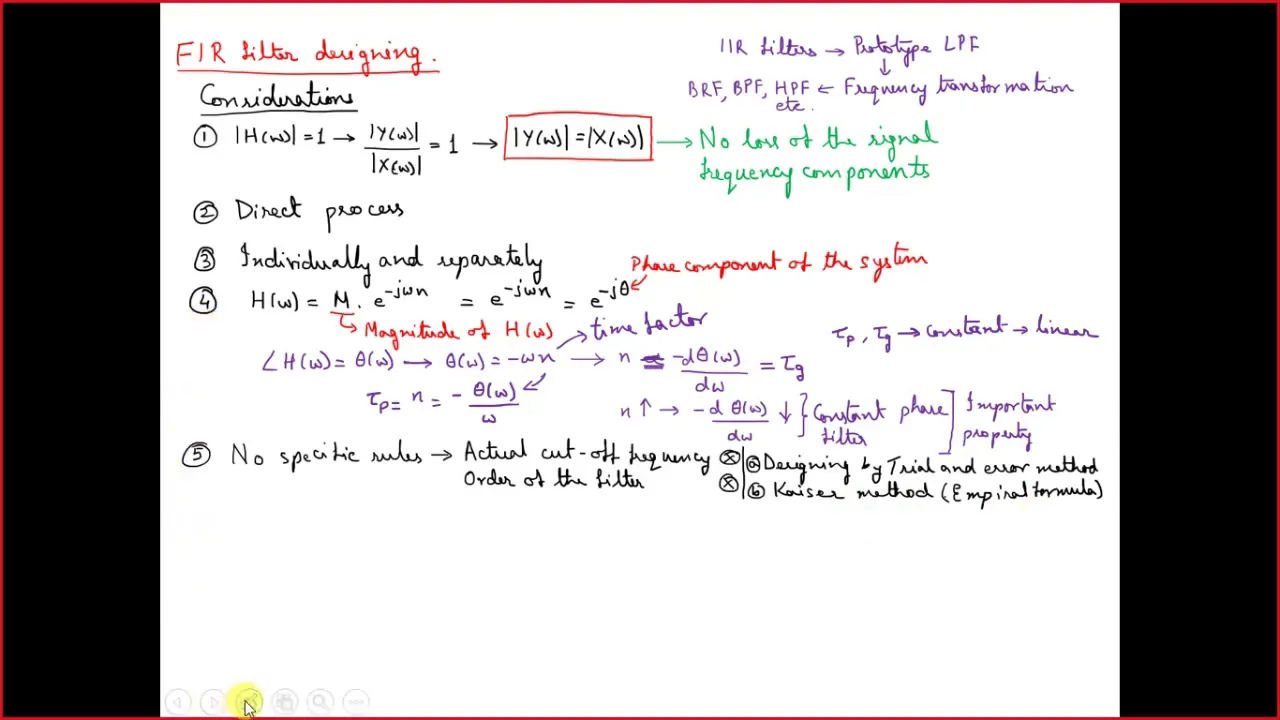 FIR filter designing.
IIR filters → Prototype LPF
↓
BRF, BPF, HPF ← Frequency transformation
etc.
Considerations
① |H(ω)| = 1 → |Y(ω)| / |X(ω)| = 1 → |Y(ω)| = |X(ω)| → No loss of the signal
frequency components
② Direct process
③ Individually and separately
Phase component of the system
④ H(ω) = M. e^-jωn = e^-jωn = e^-jθ
↳ Magnitude of H(ω)
time factor
τp, τg → constant → linear
∠H(ω) = θ(ω) → θ(ω) = -ωn → n = -dθ(ω)/dω = τg
τp = n = -θ(ω)/ω
n ↑ → -d θ(ω)/dω ↓ } Constant phase filter ] Important property
⑤ No specific rules → Actual cut-off frequency ⓧ
Order of the filter ⓧ
ⓐ Designing by Trial and error method
ⓑ Kaiser method (Empiral formula)